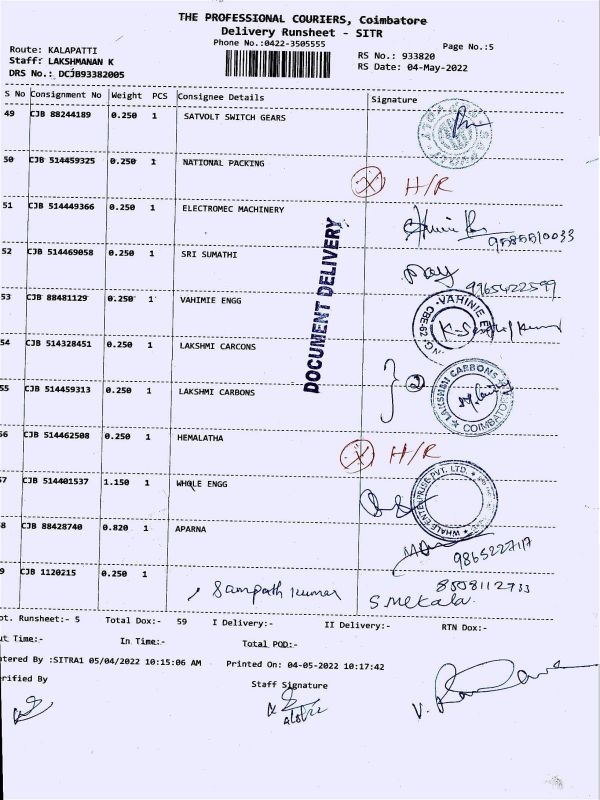 THE PROFESSIONAL COURIERS, Coimbatore
Delivery Runsheet - SITR
Phone No.:0422-3505555
Page No.:5
Route: KALAPATTI
RS No.: 933820
Staff: LAKSHMANAN K
RS Date: 04-May-2022
DRS No.: DCJB93382005
S No Consignment No Weight PCS Consignee Details Signature
49 CJB 88244189 0.250 1 SATVOLT SWITCH GEARS
50 CJB 514459325 0.250 1 NATIONAL PACKING
X H/R
51 CJB 514449366 0.250 1 ELECTROMEC MACHINERY
9585510033
52 CJB 514469058 0.250 1 SRI SUMATHI
9965422599
DOCUMENT DELIVERY
53 CJB 88481129 0.250 1 VAHIMIE ENGG
VAHINIE ENGG. CBE-62
54 CJB 514328451 0.250 1 LAKSHMI CARCONS
55 CJB 514459313 0.250 1 LAKSHMI CARBONS
2
LAKSHMAN CARBONS COIMBATORE
56 CJB 514462508 0.250 1 HEMALATHA
X H/R
57 CJB 514401537 1.150 1 WHOLE ENGG
WHALE ENTERPRISE PVT. LTD.
58 CJB 88428740 0.820 1 APARNA
9865227117
59 CJB 1120215 0.250 1
Sampath kumar S. Mekala 8508112733
pt. Runsheet:- 5 Total Dox:- 59 I Delivery:- II Delivery:- RTN Dox:-
ut Time:- In Time:- Total POD:-
ntered By :SITRA1 05/04/2022 10:15:06 AM Printed On: 04-05-2022 10:17:42
erified By Staff Signature